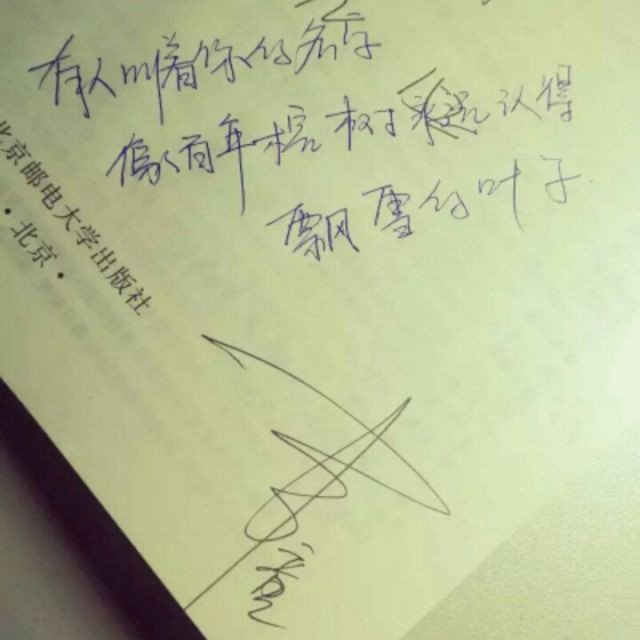 有人叫着你的名字
像百年树认得
飘雪的叶子
北京邮电大学出版社
·北京·